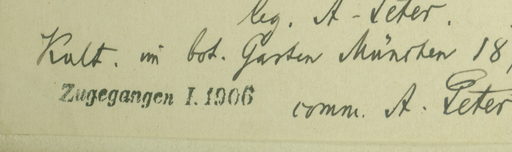 leg. A-Peter.
Kult. im bot. Garten München 18
Zugegangen I. 1906
comm. A. Peter